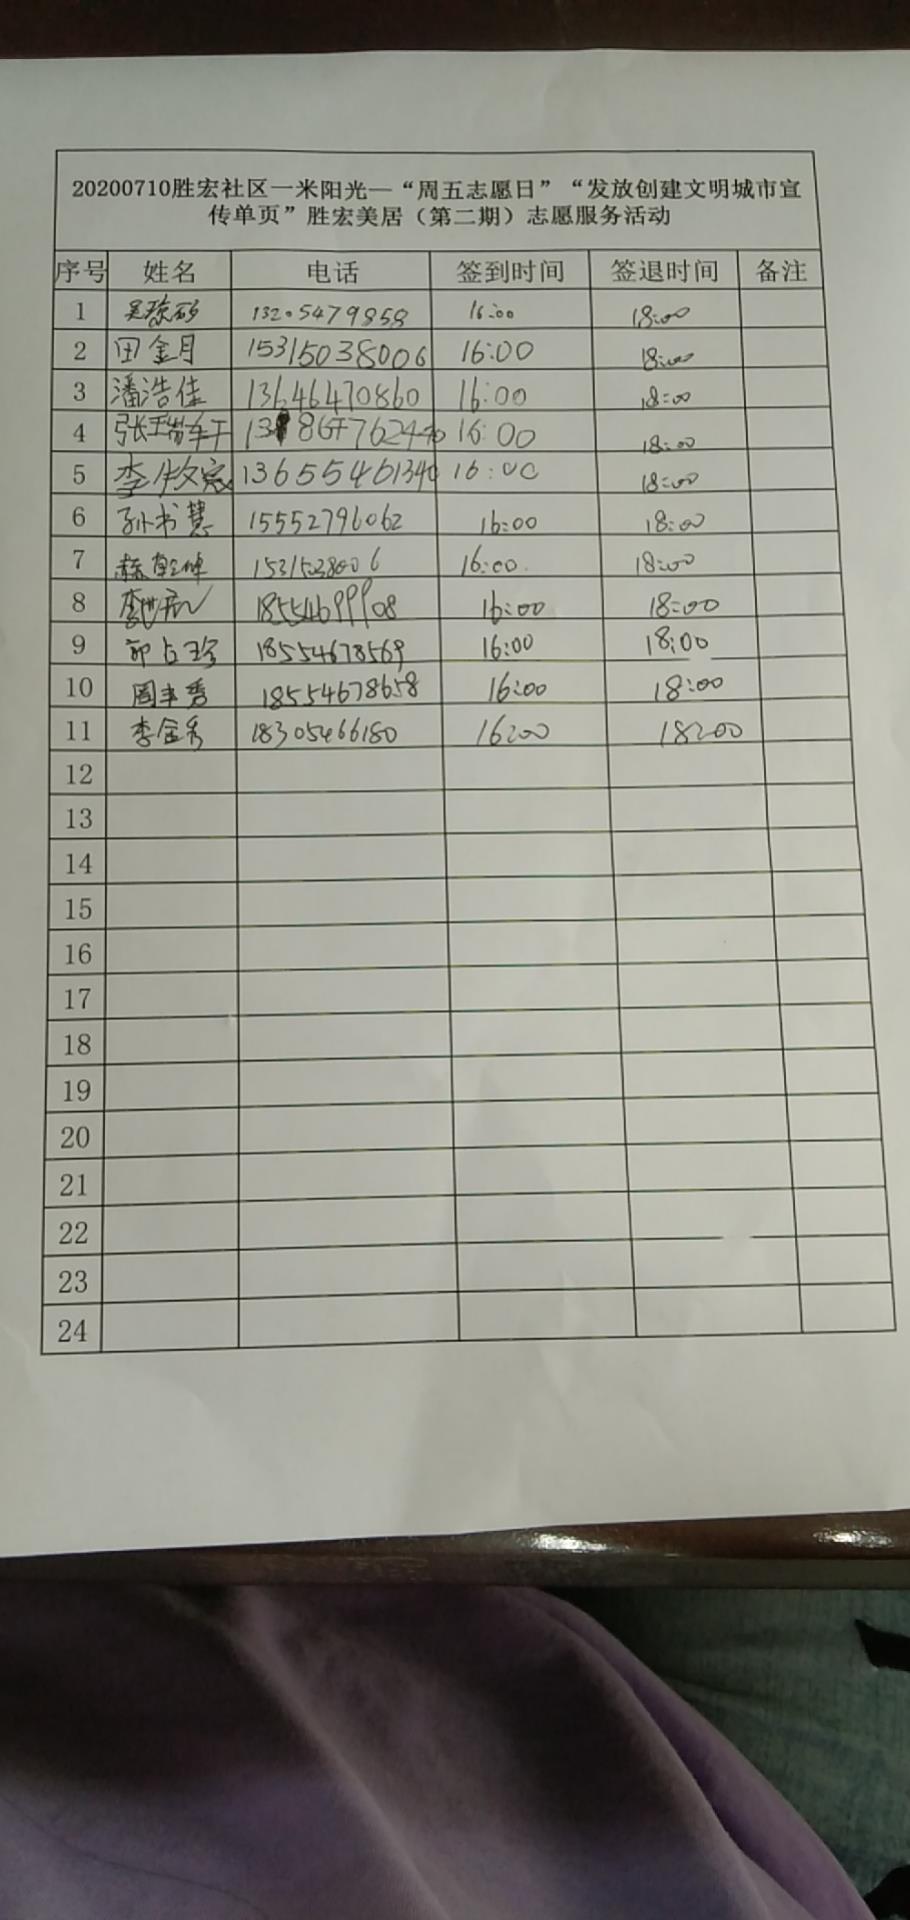 20200710胜宏社区一米阳光—“周五志愿日”“发放创建文明城市宣
传单页”胜宏美居（第二期）志愿服务活动
序号 姓名 电话 签到时间 签退时间 备注
1 13205479858 16:00 18:00
2 田金月 15315038006 16:00 18:00
3 潘浩佳 13646470860 16:00 18:00
4 16:00 18:00
5 李牧宸 13655461340 16:00 18:00
6 孙书慧 15552796062 16:00 18:00
7 16:00 18:00
8 18554699908 16:00 18:00
9 郭占珍 18554678569 16:00 18:00
10 周丰秀 18554678658 16:00 18:00
11 李金秀 18305466180 16:00 18:00
12
13
14
15
16
17
18
19
20
21
22
23
24